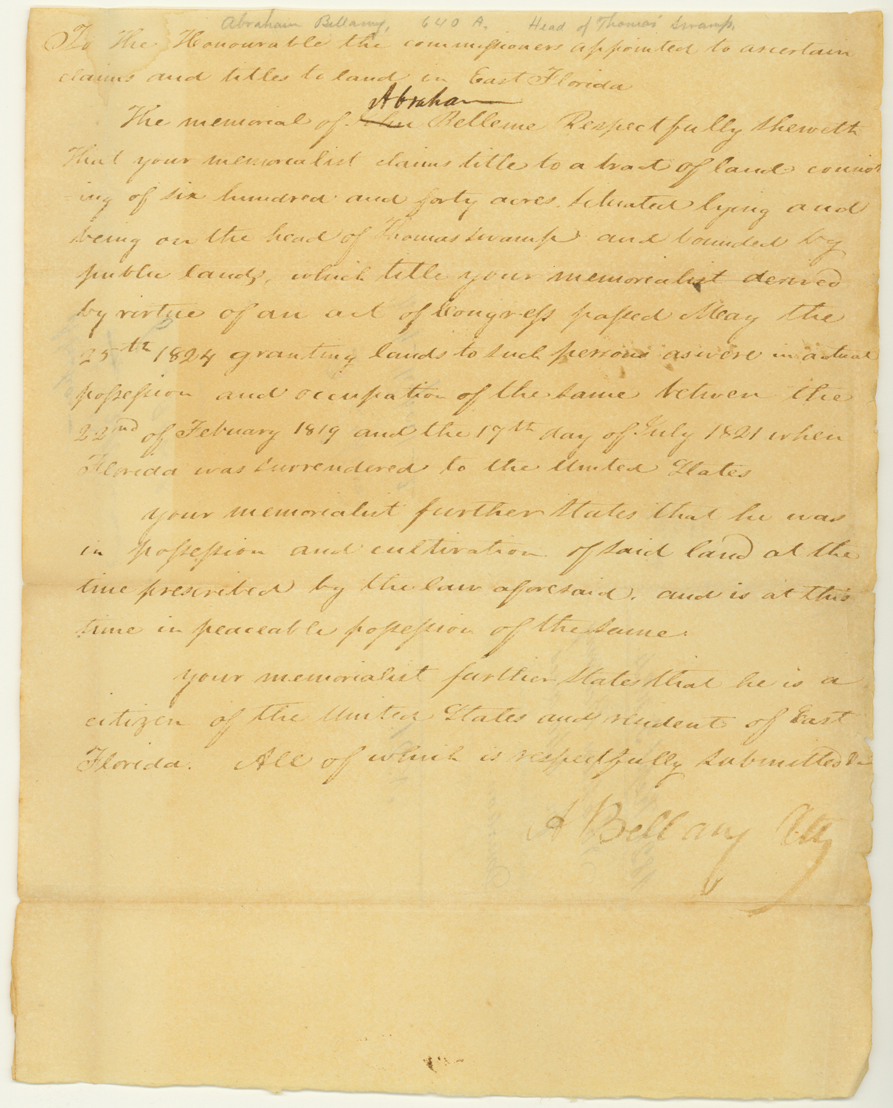 Abraham Bellamy, 640 A. Head of Thomas' Swamp.
To the Honourable the commissioners appointed to ascertain
claims and titles to land in East Florida
Abraham
The memorial of Belleme Respectfully sheweth
that your memorialist claims title to a tract of land consist
ing of six hundred and forty acres. Situated lying and
being on the head of Thomas swamp and bounded by
public lands, which title your memorialist derived
by virtue of an act of Congress passed May the
25th 1824 granting lands to such persons as were in actual
possession and occupation of the same between the
22nd of Febuary 1819 and the 17th day of July 1821 when
Florida was surrendered to the United States
your memorialist further States that he was
in possession and cultivation of said land at the
time prescribed by the law aforesaid, and is at this
time in peaceable possession of the same.
your memorialist further States that he is a
citizen of the United States and resident of East
Florida. All of which is respectfully submitted &c
A Bellamy Atty